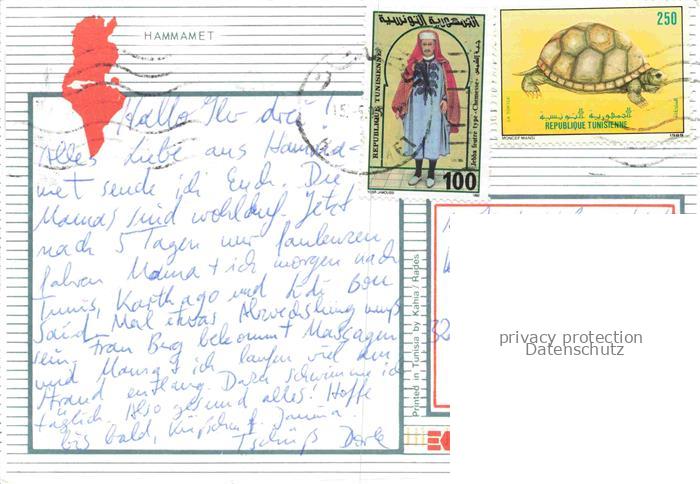 HAMMAMET
Hallo Ihr drei!
Alles Liebe aus Hamma-
met sende ich Euch. Die
Mamas sind wohlauf. Jetzt
nach 5 Tagen nur faulenzen
fahren Mama + ich morgen nach
Tunis, Karthago und Sidi Bou
Said. Mal etwas Abwechslung muß
sein. Frau Berg bekommt Massagen
und Mama + ich laufen viel am
Strand entlang. Dazu schwimme ich
täglich. Also gesund alles. Hoffe
bis bald, Küßchen f.
Tschüß
Printed in Tunisia by Kahia / Rades
الجمهورية التونسية
REPUBLIQUE TUNISIENNE
Jebba fourre type «Chamsse»
100
250
LA TORTUE
الجمهورية التونسية
REPUBLIQUE TUNISIENNE
MONCEF MANSI
1989
32
privacy protection
Datenschutz